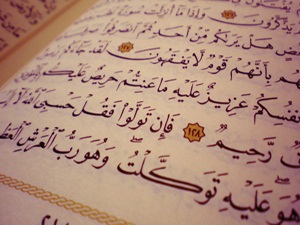 وَإِذَا مَا أُنزِلَتْ
بَعْضٍ هَلْ يَرَىٰكُم مِّنْ أَحَدٍ ثُمَّ ٱنصَرَفُوا۟
بِأَنَّهُمْ قَوْمٌ لَّا يَفْقَهُونَ ١٢٧ لَقَدْ
أَنفُسِكُمْ عَزِيزٌ عَلَيْهِ مَا عَنِتُّمْ حَرِيصٌ عَلَيْكُم
رَّحِيمٌ ١٢٨ فَإِن تَوَلَّوْا۟ فَقُلْ حَسْبِىَ ٱللَّهُ
هُوَ عَلَيْهِ تَوَكَّلْتُ وَهُوَ رَبُّ ٱلْعَرْشِ